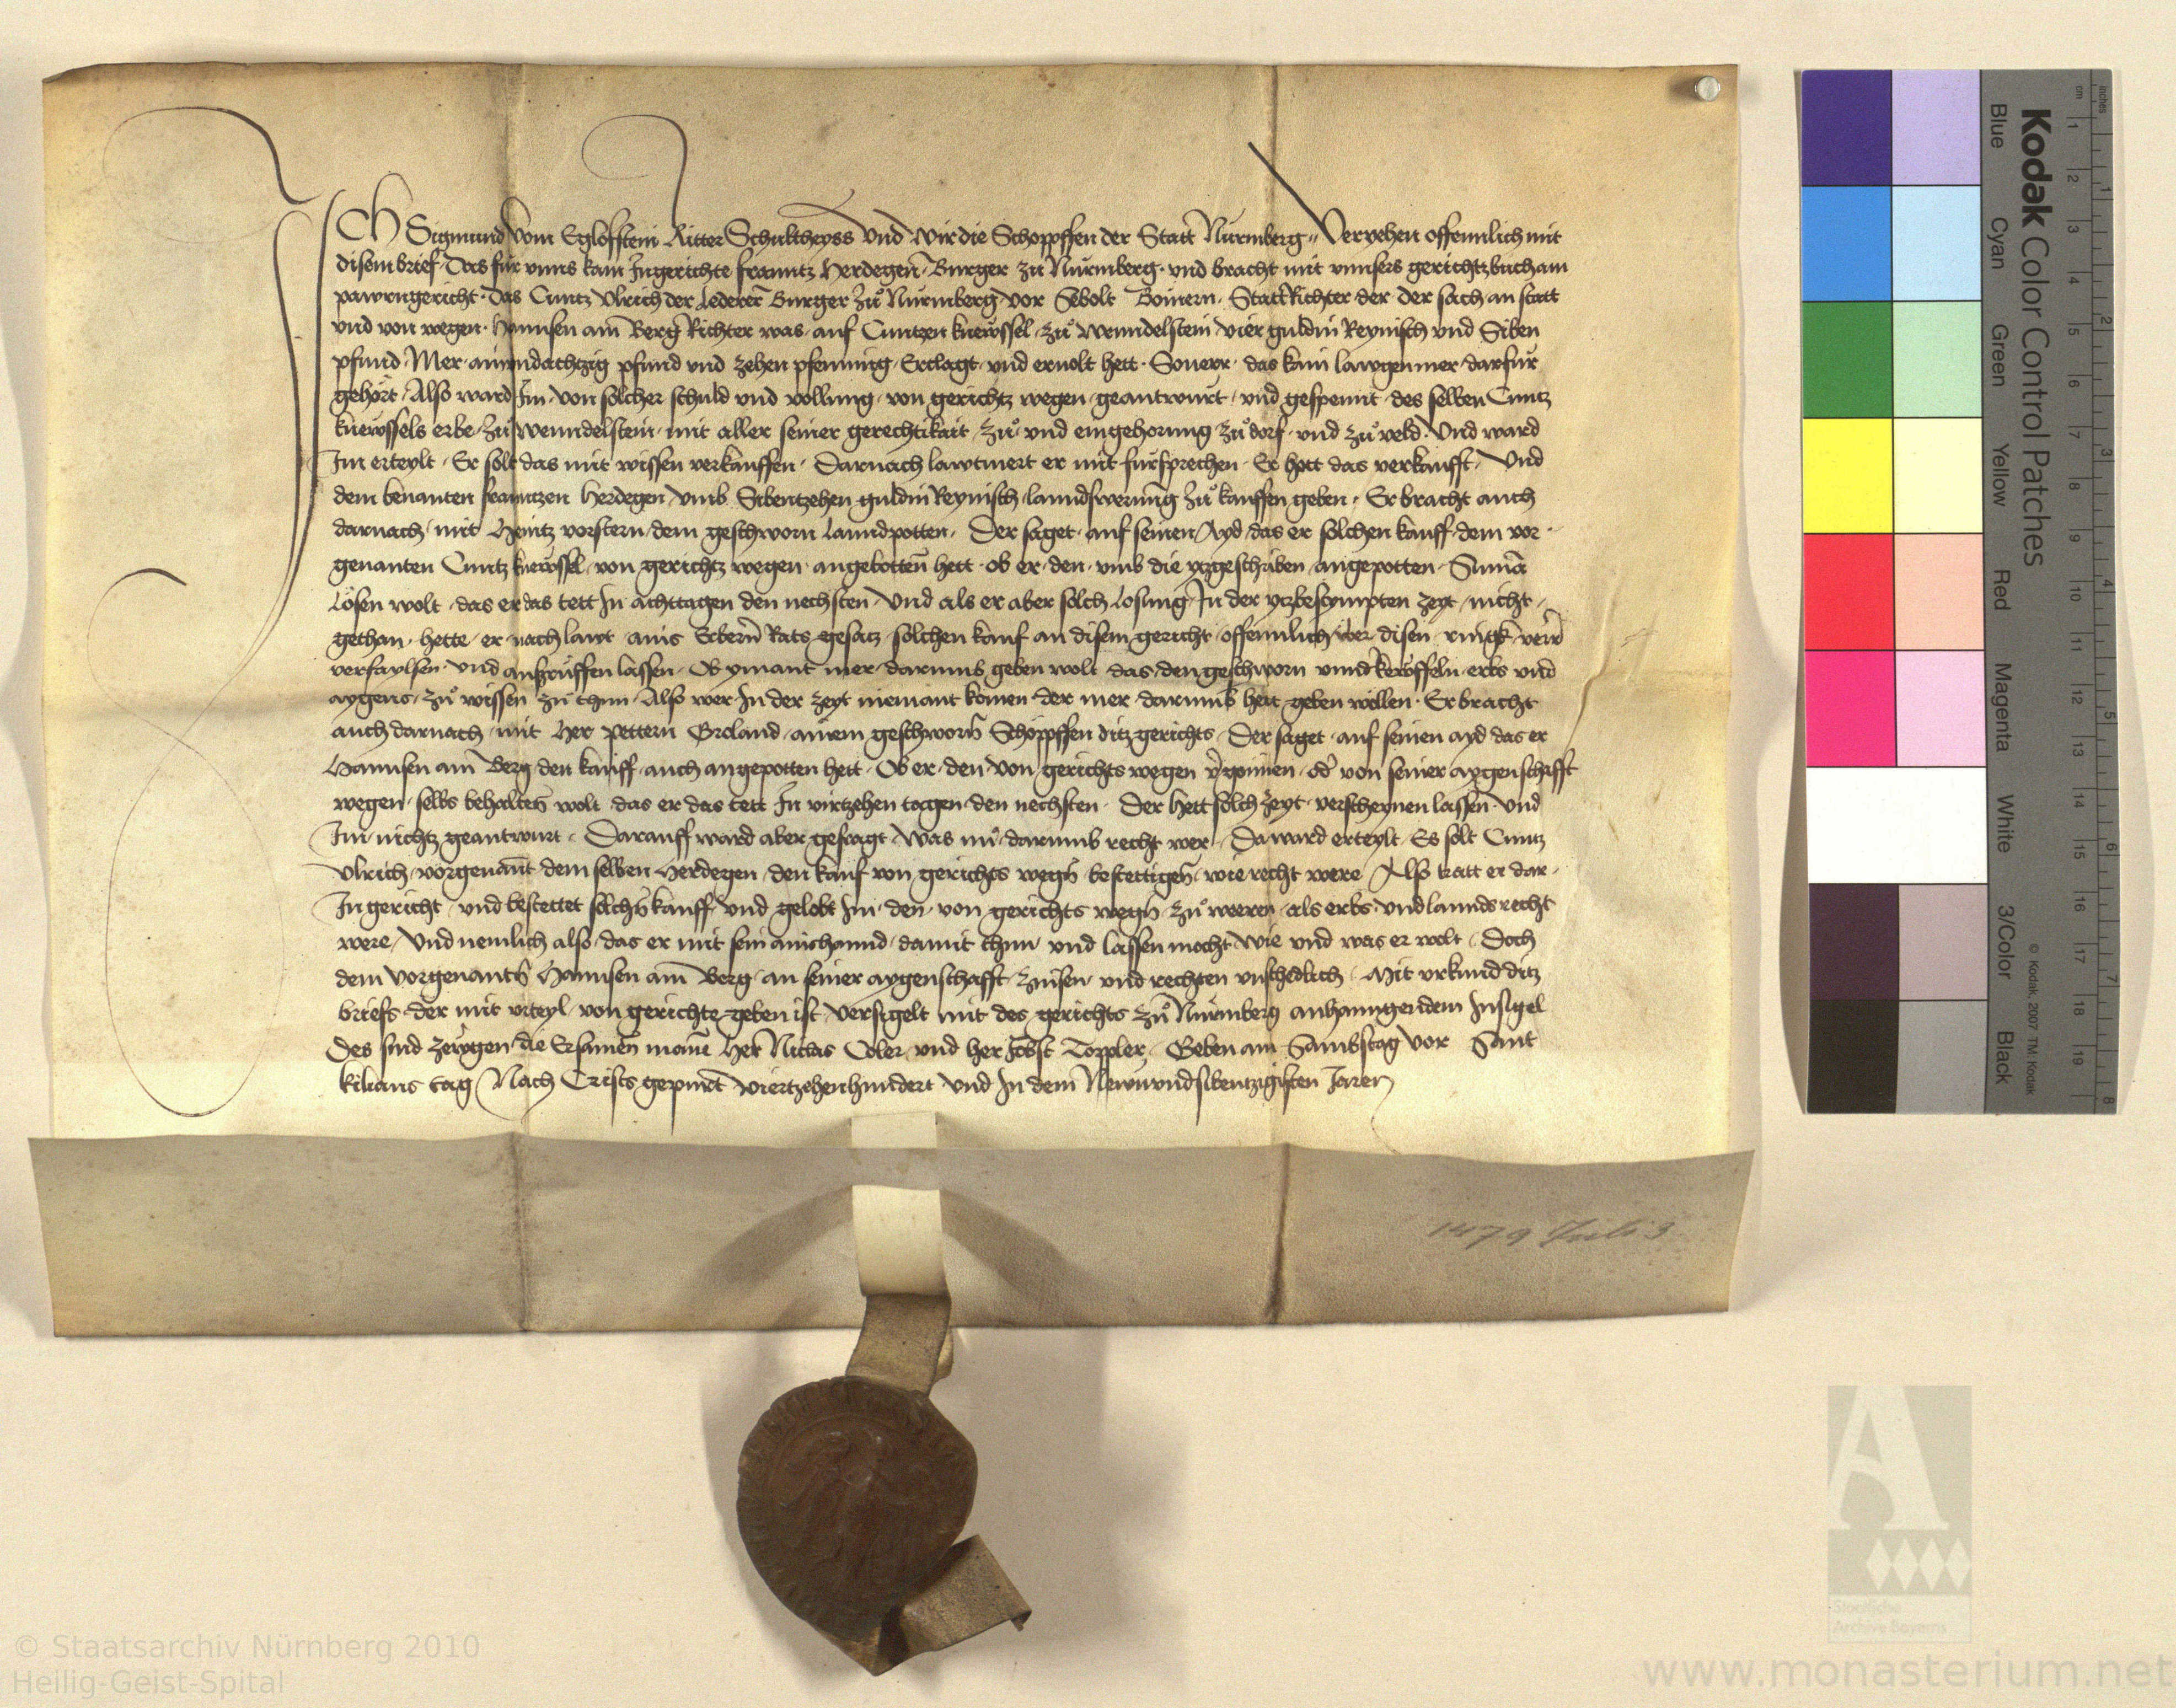 ICH Sigmund vom Eglofstein Ritter Schultheyss Vnd Wir die Schopffen der Statt Nuremberg Veryehen offennlich mit
disem brief Das fur vnns kam Ingerichte Franntz Herdegen Burger zu Nuremberg vnd bracht mit vnnsers gerichtzbuch am
pawrngericht Das Cuntz Vlrich der Lederer Burger zu Nuremberg vor Sebolt StattRichter der der sach an statt
vnd von wegen Hannsen am Berg Richter was auf Cuntzen zu Wenndelstein vier guldin Reynisch vnd Siben
pfund Mer ainundachtzig pfund vnd zehen pfenning Erclagt vnd ervolt hett Souerr das kain lawgen mer darfur
gehort Also ward Im von solcher schuld vnd vollung von gerichtz wegen geantwurt vnd gespennt des selben Cuntz
erbe zu Wenndelstein mit aller seiner gerechtikait zu vnd eingehorung zu dorf vnd zu veld Vnd ward
Im erteylt Er solt das mit wissen verkauffen Darnach lawtmert er mit fursprechen Er hett das verkaufft Vnd
dem benanten Franntzen Herdegen vmb Sibentzehen guldin Reynisch lanndswerung zu kauffen geben Er bracht auch
darnach mit Heintz vorstern dem geschworn Lanndpotten Der saget auf seinen Ayd das er solchen kauff dem vor
genanten Cuntz von gerichtz wegen angebotten hett ob er den vmb die ytzgeschriben angepotten Summa
Losen wolt das er das tett In achttagen den nechsten Vnd als er aber solch Losung In der ytzbestympten zeyt nicht
gethan hette er nach lawt ains Erbern Rats gesatz solchen kauf an disem gericht offennlich
verfaylsen vnd aussruffen lassen Ob ymant mer darumb geben wolt das den geschworn erbs vnd
aygens zu wissen zu thun Also wer In der zeyt niemant komen der mer darumb hett geben wollen Er bracht
auch darnach mit Her Pettern Groland ainem geschworn Schopffen ditz gerichts Der saget auf seinen ayd das er
Hannsen am Berg den kauff auch angepotten hett Ob er den von gerichts wegen vergonnen oder von seiner aygenschafft
wegen selbs behalten wolt das er das tett In virtzehen tagen den nechsten Der hett solch zeyt verscheynen lassen Vnd
Im nichtz geantwurt Darauff ward aber gefragt Was nu darumb recht wer Da ward erteylt Es solt Cuntz
Vlrich vorgenant dem selben Herdegen den kauf von gerichts wegen bestettigen wie recht were Also tratt er dar
In gericht vnd bestettet solchen kauff vnd gelobt Im den von gerichts wegen zu weeren als erbs vnd lannds recht
were Vnd nemlich also das er mit sein ainichannd damit thun vnd lassen mocht wie vnd was er wolt Doch
dem vorgenanten Hannsen am Berg an seiner aygenschafft zinsen vnd rechten vnschedlich Mit vrkund ditz
briefs der mit vrteyl von gerichte geben ist versigelt mit des gerichts zu Nuremberg anhanngendem Insigel
Des sind zewgen die Ersamen mann Her Niclas Coler vnd her Jobst Toppler Geben am Sambstag vor Sant
Kilians tag Nach Crists gepurt viertzehenhundert vnd In dem Newnvndsibentzigisten Jaren
1479 Juli 3
Kodak Color Control Patches
Blue Cyan Green Yellow Red Magenta White 3/Color Black
© Kodak, 2007 TM: Kodak
cm 1 2 3 4 5 6 7 8 9 10 11 12 13 14 15 16 17 18 19
inches 1 2 3 4 5 6 7 8
Staatliche
Archive Bayerns
© Staatsarchiv Nürnberg 2010
Heilig-Geist-Spital
www.monasterium.net